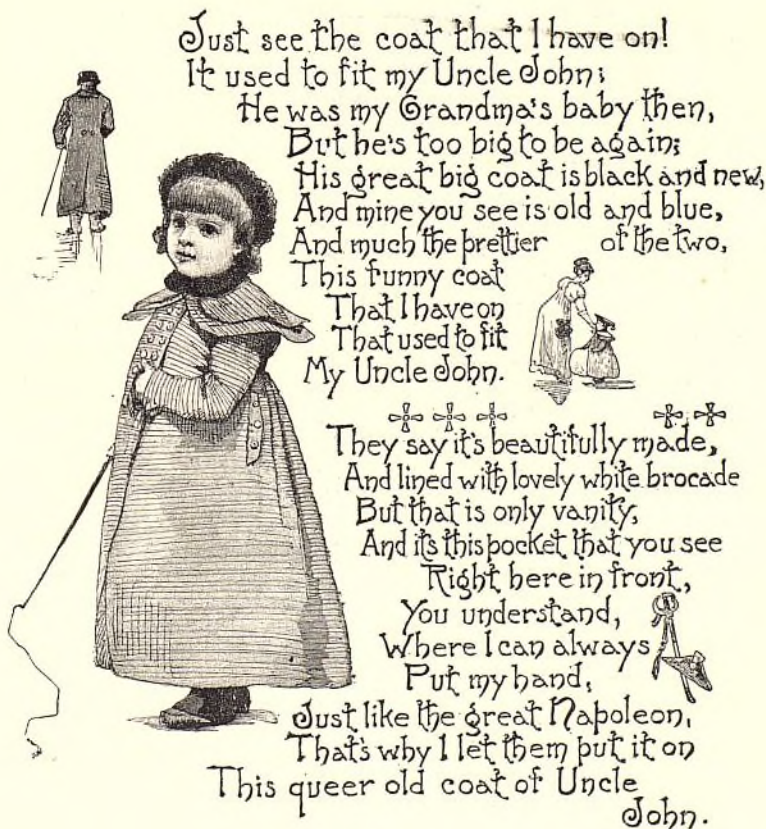 Just see the coat that I have on!
It used to fit my Uncle John;
He was my Grandma's baby then,
But he's too big to be again;
His great big coat is black and new,
And mine you see is old and blue,
And much the prettier of the two,
This funny coat
That I have on
That used to fit
My Uncle John.
They say it's beautifully made,
And lined with lovely white brocade
But that is only vanity,
And it's this pocket that you see
Right here in front,
You understand,
Where I can always
Put my hand,
Just like the great Napoleon,
That's why I let them put it on
This queer old coat of Uncle
John.